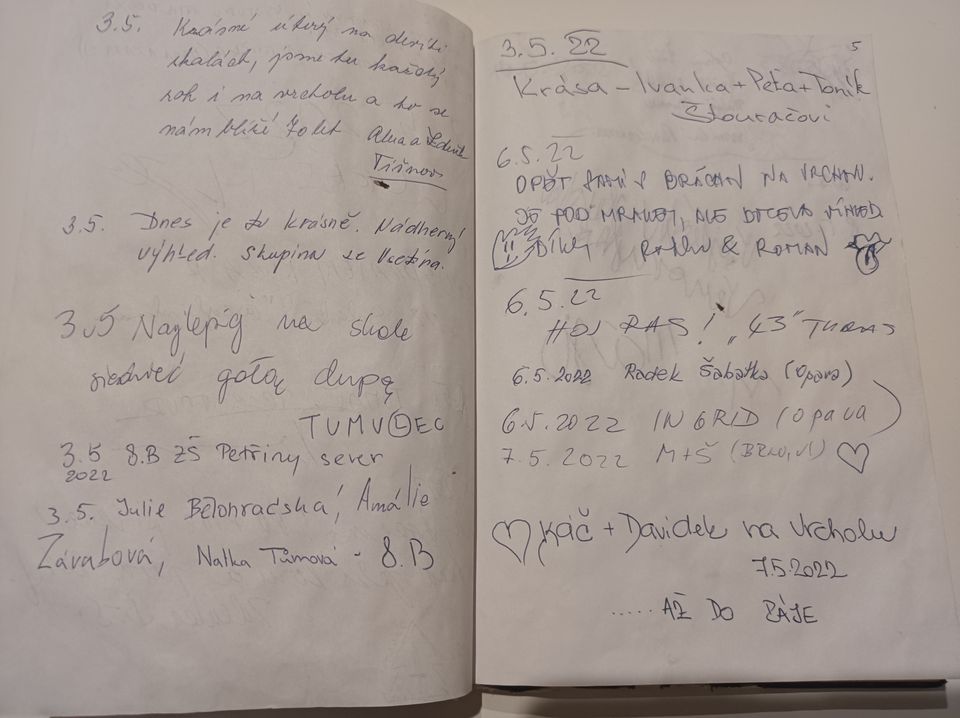 3.5. Krásné úterý na devíti
skalách, jsme tu každý
rok i na vrcholu a to se
nám blíží 70 let
Alena a Zdeněk
Tišnov
3.5. Dnes je tu krásně. Nádherný
výhled. Skupina ze Vsetína.
3.5 Najlepij na skole
siedzieć gołą dupą
TUMVLEC
3.5 8.B ZŠ Petřiny sever
2022
3.5. Julie Bělohradská, Amálie
Zárabová, Natka Tůmová - 8.B
5
3.5.22
Krása - Ivanka + Peťa + Toník
Štouračovi
6.5.22
OPĚT JSEM S BRÁCHN NA VRCHN.
JE POD MRAKEM, ALE DOCELA VÝHLED.
DÍKY & ROMAN
6.5.22
HOJ RAS! „43" TURAS
6.5.2022 Radek Šabatka (Opava)
6.5.2022 INGRID (Opava)
7.5.2022 M+Š (Brno, )
Káč + Davidek na vrcholu
7.5.2022
..... AŽ DO RÁJE